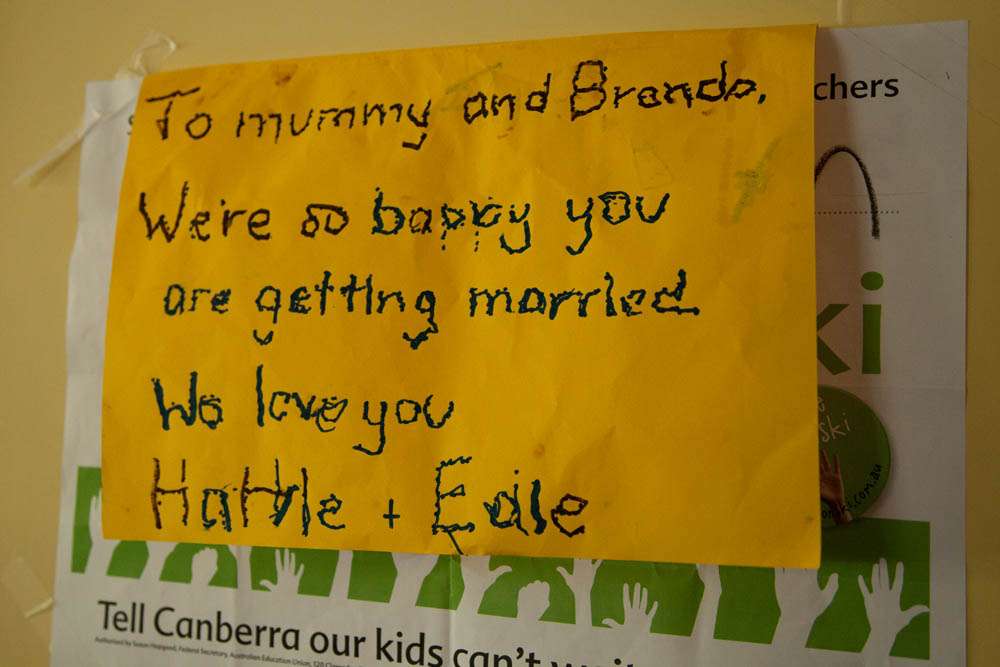 To mummy and Brenda,
chers
We're so happy you
are getting married.
ki
We love you
ski
.com.au
Hattie + Edie
Tell Canberra our kids can't wait
Authorised by Susan Hopgood, Federal Secretary, Australian Education Union, 120